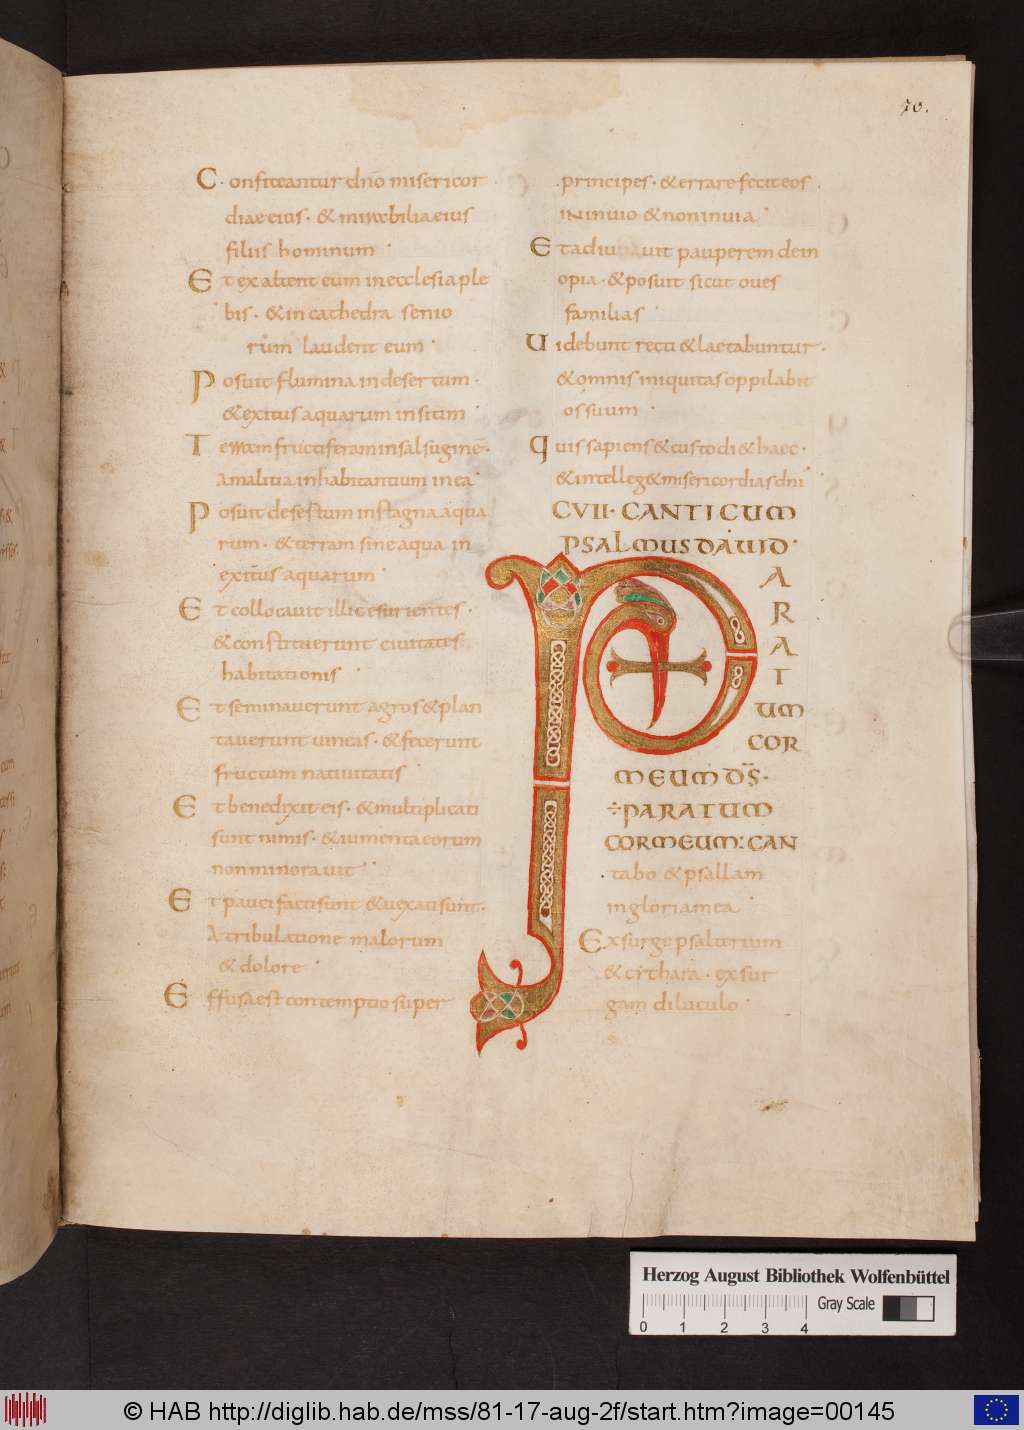 70.
C. onfiteantur dnō misericor
diae eius. & mirabilia eius
filiis hominum
Et exaltent eum in ecclesia ple
bis. & in cathedra senio
rum laudent eum
Posuit flumina in desertum.
& exitus aquarum in sitim
Terram fructiferam in salsuginē.
A malitia inhabitantium in ea
Posuit desertum in stagna aqua
rum. & terram sine aqua in
exitus aquarum
Et collocavit illic esurientes.
& constituerunt civitates
habitationis
Et seminaverunt agros & plan
taverunt uineas. & fecerunt
fructum nativitatis
Et benedixit eis. & multiplicati
sunt nimis. & iumenta eorum
non minoravit
Et pauci facti sunt & uexati sunt.
A tribulatione malorum
& dolore
Effusa est contemptio super
principes. & errare fecit eos
IN inuio & non in uia
Et adiuuauit pauperem de in
opia. & posuit sicut oues
familias
Uidebunt recti & laetabuntur.
& omnis iniquitas oppilabit
os suum
Quis sapiens & custodi& haec.
& intelleg& misericordias dn̄i
CVII. CANTICUM
PSALMUS DAUID
PARATUM
COR
MEUM D̄S.
÷PARATUM
COR MEUM: CAN
tabo & psallam
in gloria mea
Exsurge psalterium
& cithara. exsur
gam diluculo
Herzog August Bibliothek Wolfenbüttel
0 1 2 3 4 Gray Scale
© HAB http://diglib.hab.de/mss/81-17-aug-2f/start.htm?image=00145